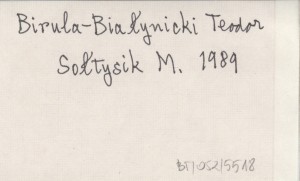 Birula-Białynicki Teodor
Sołtysik M. 1989
BT/052/5518